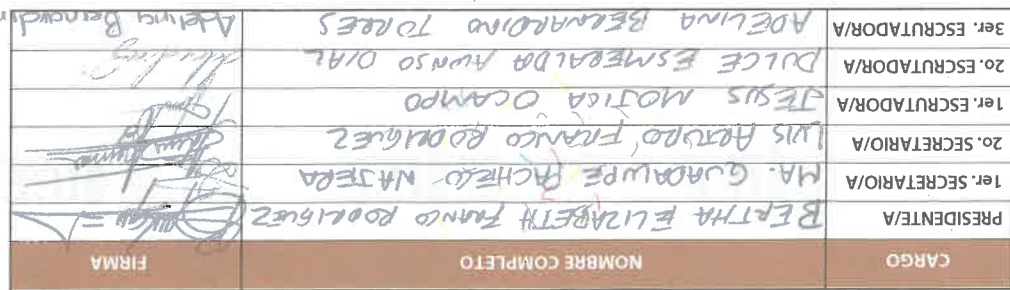 CARGO NOMBRE COMPLETO FIRMA
PRESIDENTE/A BERTHA ELIZABETH FRANCO RODRIGUEZ
1er. SECRETARIO/A MA. GUADALUPE PACHECO NAJERA
2o. SECRETARIO/A LUIS ARTURO FRANCO RODRIGUEZ
1er. ESCRUTADOR/A JESUS MOJICA OCAMPO
2o. ESCRUTADOR/A DULCE ESMERALDA ALONSO DIAL
3er. ESCRUTADOR/A ADELINA BERNARDINO TORRES Adelina Bernardin